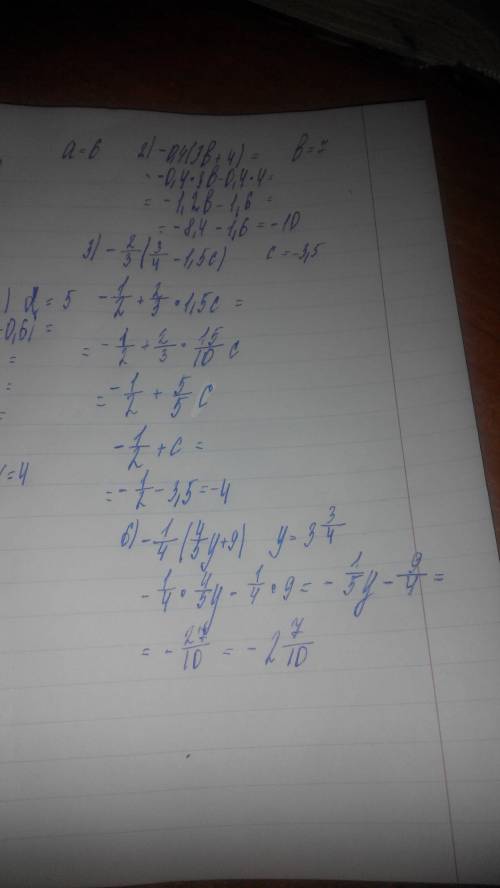 a = 6 2) -0,4(3b+4) = b = 7
= -0,4·3b-0,4·4=
= -1,2b - 1,6 =
= -8,4 - 1,6 = -10
3) -2/3(3/4 - 1,5c) c = -3,5
) d = 5 -1/2 + 2/3 · 1,5c =
-0,6) =
= = -1/2 + 2/3 · 15/10 c
= = -1/2 + 5/5 c
-1/2 + c =
= 4 = -1/2 - 3,5 = -4
6) -1/4(4/5y+9) y = 3 3/4
-1/4 · 4/5y - 1/4 · 9 = -1/5y - 9/4 =
= -27/10 = -2 7/10